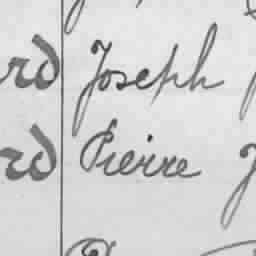 rd Joseph
rd Pierre J